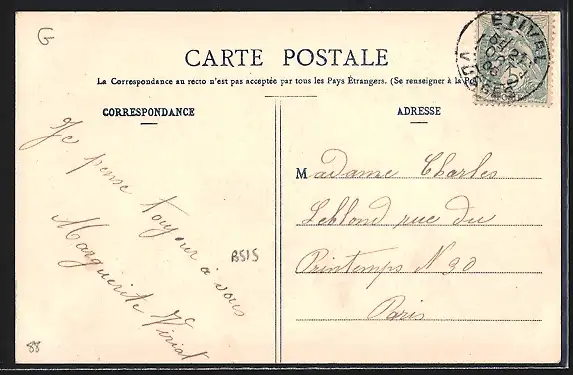 G
ETIVAL
VOSGES
CARTE POSTALE
La Correspondance au recto n'est pas acceptée par tous les Pays Étrangers. (Se renseigner à la Po
CORRESPONDANCE
ADRESSE
Je pense toujour à vous
Marguerite Viriat
Madame Charles
Leblond rue du
Printemps N 20
Paris
B515
88